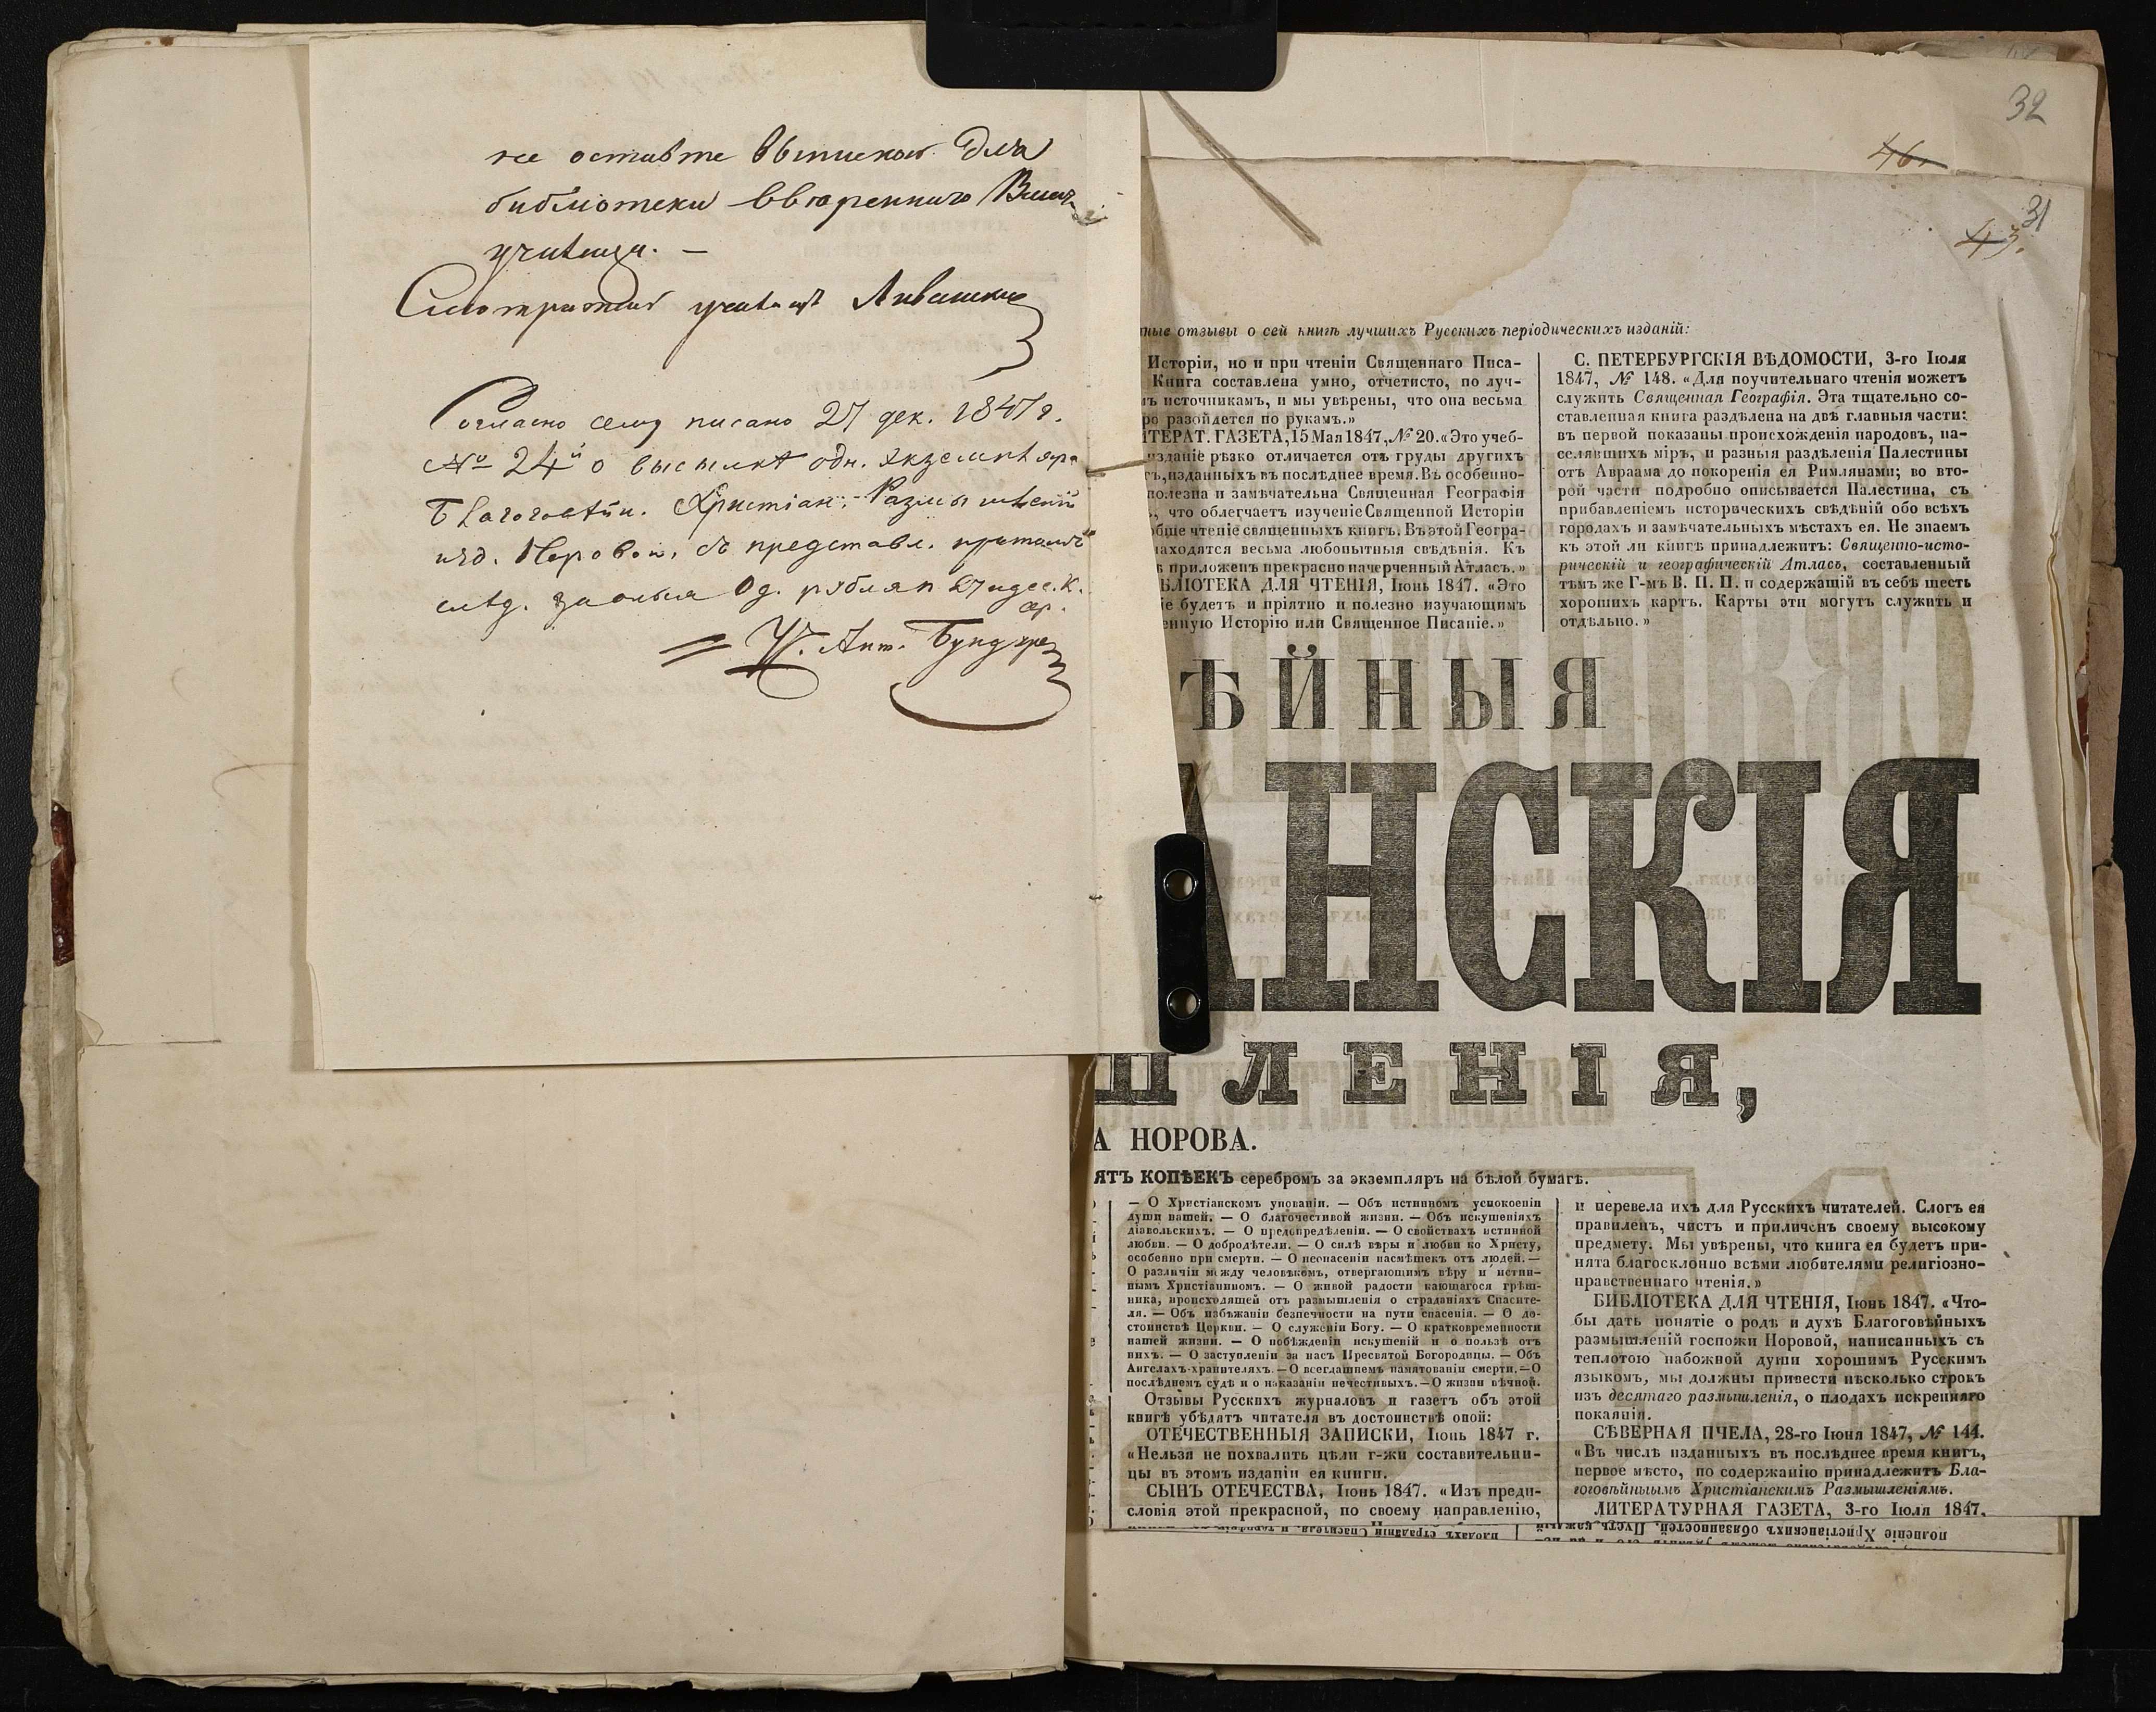 не оставте выпискою для
библіотеки ввѣреннаго Вамъ
училища. —
Смотритель училищъ
Согласно сему писано 27 дек. 1847 г.
№ 24й о высылкѣ одн. экземпляра
Благоговѣйн. Христіан. Размышленій
изд. Норовой, съ представл. притомъ
слѣд. за оныя Од. рубля п
сер.
У. Ант.
32
46.
31
43.
ные отзывы о сей книгѣ лучшихъ Русскихъ періодическихъ изданій:
Исторіи, но и при чтеніи Священнаго Писа-
Книга составлена умно, отчетисто, по луч-
ъ источникамъ, и мы увѣрены, что она весьма
ро разойдется по рукамъ.»
ІТЕРАТ. ГАЗЕТА, 15 Мая 1847, № 20. «Это учеб-
изданіе рѣзко отличается отъ груды другихъ
ъ, изданныхъ въ послѣднее время. Въ особенно-
полезна и замѣчательна Священная Географія
, что облегчаетъ изученіе Священной Исторіи
обще чтеніе священныхъ книгъ. Въ этой Геогра-
находятся весьма любопытныя свѣдѣнія. Къ
ѣ приложенъ прекрасно начерченный Атласъ.»
БЛІОТЕКА ДЛЯ ЧТЕНІЯ, Іюнь 1847. «Это
іе будетъ и пріятно и полезно изучающимъ
енную Исторію или Священное Писаніе.»
С. ПЕТЕРБУРГСКІЯ ВѢДОМОСТИ, 3-го Іюля
1847, № 148. «Для поучительнаго чтенія можетъ
служить Священная Географія. Эта тщательно со-
ставленная книга раздѣлена на двѣ главныя части:
въ первой показаны происхожденія народовъ, на-
селявшихъ міръ, и разныя раздѣленія Палестины
отъ Авраама до покоренія ея Римлянами; во вто-
рой части подробно описывается Палестина, съ
прибавленіемъ историческихъ свѣдѣній обо всѣхъ
городахъ и замѣчательныхъ мѣстахъ ея. Не знаемъ
къ этой ли книгѣ принадлежитъ: Священно-исто-
рическій и географическій Атласъ, составленный
тѣмъ же Г-мъ В. П. П. и содержащій въ себѣ шесть
хорошихъ картъ. Карты эти могутъ служить и
отдѣльно.»
ѢЙНЫЯ
АНСКІЯ
ШЛЕНІЯ,
А НОРОВА.
ЯТЪ КОПѢЕКЪ серебромъ за экземпляръ на бѣлой бумагѣ.
— О Христіанскомъ упованіи. — Объ истинномъ успокоеніи
души нашей. — О благочестивой жизни. — Объ искушеніяхъ
діавольскихъ. — О предопредѣленіи. — О свойствахъ истинной
любви. — О добродѣтели. — О силѣ вѣры и любви ко Христу,
особенно при смерти. — О неопасеніи насмѣшекъ отъ людей. —
О различіи между человѣкомъ, отвергающимъ вѣру и истин-
нымъ Христіаниномъ. — О живой радости кающагося грѣш-
ника, происходящей отъ размышленія о страданіяхъ Спасите-
ля. — Объ избѣжаніи безпечности на пути спасенія. — О до-
стоинствѣ Церкви. — О служеніи Богу. — О кратковременности
нашей жизни. — О побѣжденіи искушеній и о пользѣ отъ
нихъ. — О заступленіи за насъ Пресвятой Богородицы. — Объ
Ангелахъ-хранителяхъ. — О всегдашнемъ памятованіи смерти. — О
послѣднемъ судѣ и о наказаніи нечестивыхъ. — О жизни вѣчной.
Отзывы Русскихъ журналовъ и газетъ объ этой
книгѣ убѣдятъ читателя въ достоинствѣ оной:
ОТЕЧЕСТВЕННЫЯ ЗАПИСКИ, Іюнь 1847 г.
«Нельзя не похвалить цѣли г-жи составительни-
цы въ этомъ изданіи ея книги.
СЫНЪ ОТЕЧЕСТВА, Іюнь 1847. «Изъ преди-
словія этой прекрасной, по своему направленію,
и перевела ихъ для Русскихъ читателей. Слогъ ея
правиленъ, чистъ и приличенъ своему высокому
предмету. Мы увѣрены, что книга ея будетъ при-
нята благосклонно всѣми любителями религіозно-
нравственнаго чтенія.»
БИБЛІОТЕКА ДЛЯ ЧТЕНІЯ, Іюнь 1847. «Что-
бы дать понятіе о родѣ и духѣ Благоговѣйныхъ
размышленій госпожи Норовой, написанныхъ съ
теплотою набожной души хорошимъ Русскимъ
языкомъ, мы должны привести нѣсколько строкъ
изъ десятаго размышленія, о плодахъ искренняго
покаянія.
СѢВЕРНАЯ ПЧЕЛА, 28-го Іюня 1847, № 144.
«Въ числѣ изданныхъ въ послѣднее время книгъ,
первое мѣсто, по содержанію принадлежитъ Бла-
гоговѣйнымъ Христіанскимъ Размышленіямъ.
ЛИТЕРАТУРНАЯ ГАЗЕТА, 3-го Іюля 1847,
полненіе Христіанскихъ обязанностей. Пусть каждый
плодахъ страданій Спасителя, и